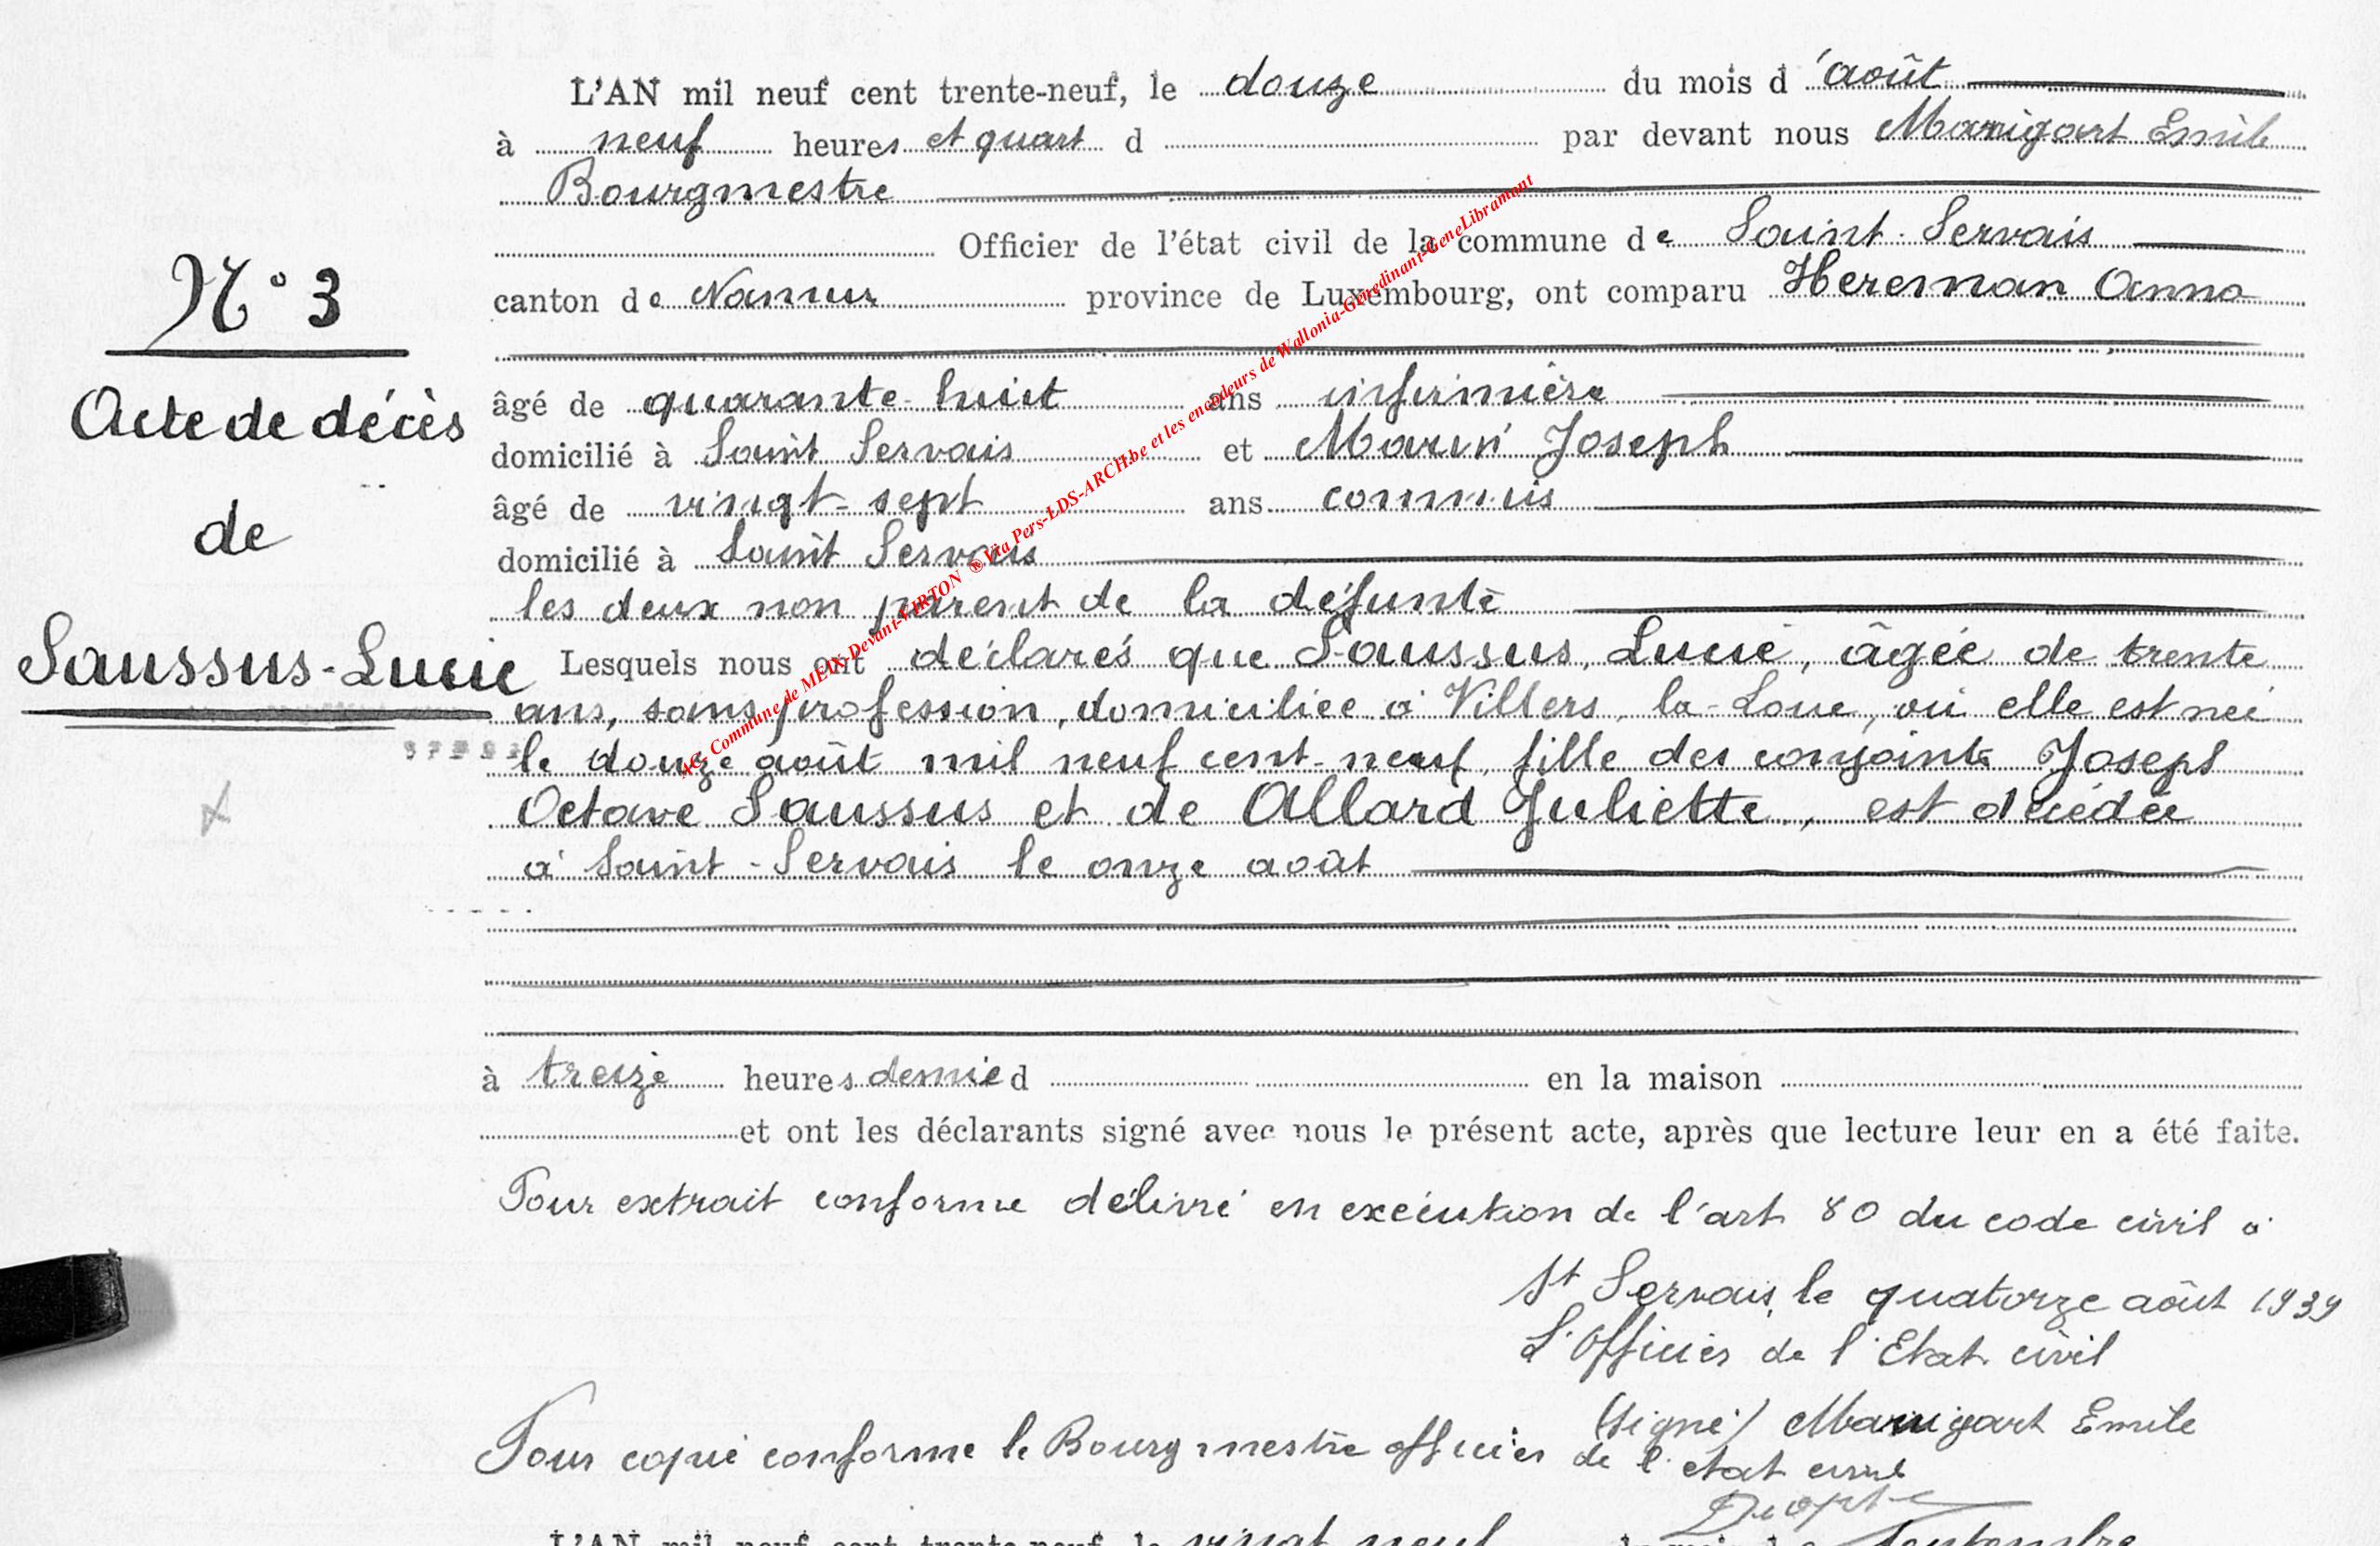 L'AN mil neuf cent trente-neuf, le douze du mois d 'août
à neuf heures et quart d par devant nous Emile
Bourgmestre
Officier de l'état civil de la commune de Saint-Servais
canton de Namur province de Luxembourg, ont comparu Hereman Anna
N° 3
Acte de décès
de
Saussus-Lucie
âgé de quarante-huit ans infirmière
domicilié à Saint Servais et Joseph
âgé de vingt-sept ans commis
domicilié à Saint Servais
les deux non parent de la défunte
Lesquels nous ont déclarés que Saussus, Lucie, âgée de trente
ans, sans profession, domiciliée à Villers-la-Loue, où elle est née
le douze août mil neuf cent-neuf, fille des conjoints Joseph
Octave Saussus et de Allard Juliette, est décédée
à Saint-Servais le onze août
à treize heures demie d en la maison
et ont les déclarants signé avec nous le présent acte, après que lecture leur en a été faite.
Pour extrait conforme délivré en exécution de l'art 80 du code civil à
St Servais, le quatorze août 1939
L'Officier de l'Etat civil
(signé) Emile
Pour copie conforme le Bourgmestre officier de l'état civil
L'AN mil neuf cent trente-neuf, le vingt neuf du mois de Septembre
AC. Commune de MEIX-Devant-VIRTON ® Via Pers-LDS-ARCH.be et les encodeurs de Wallonia-Genedinant-GeneLibramont